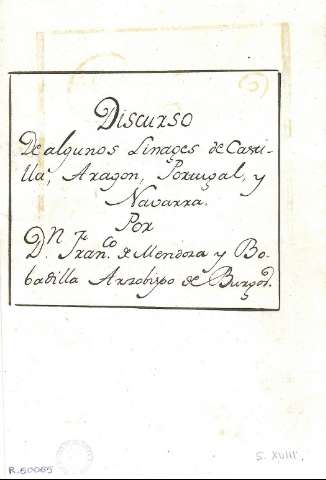 (5)
Discurso
De algunos Linages de Casti-
lla, Aragon, Portugal, y
Navarra.
Por
D.n Fran.co de Mendoza y Bo-
badilla Arzobispo de Burgos.
R.60065
S. XVIII.